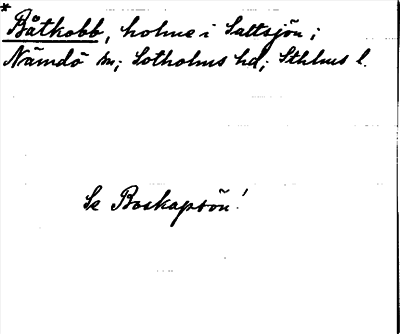 *
Båtkobb, holme i Saltsjön;
Nämdö sn; Sotholms hd; Sthlms l.
Se Boskapsön!